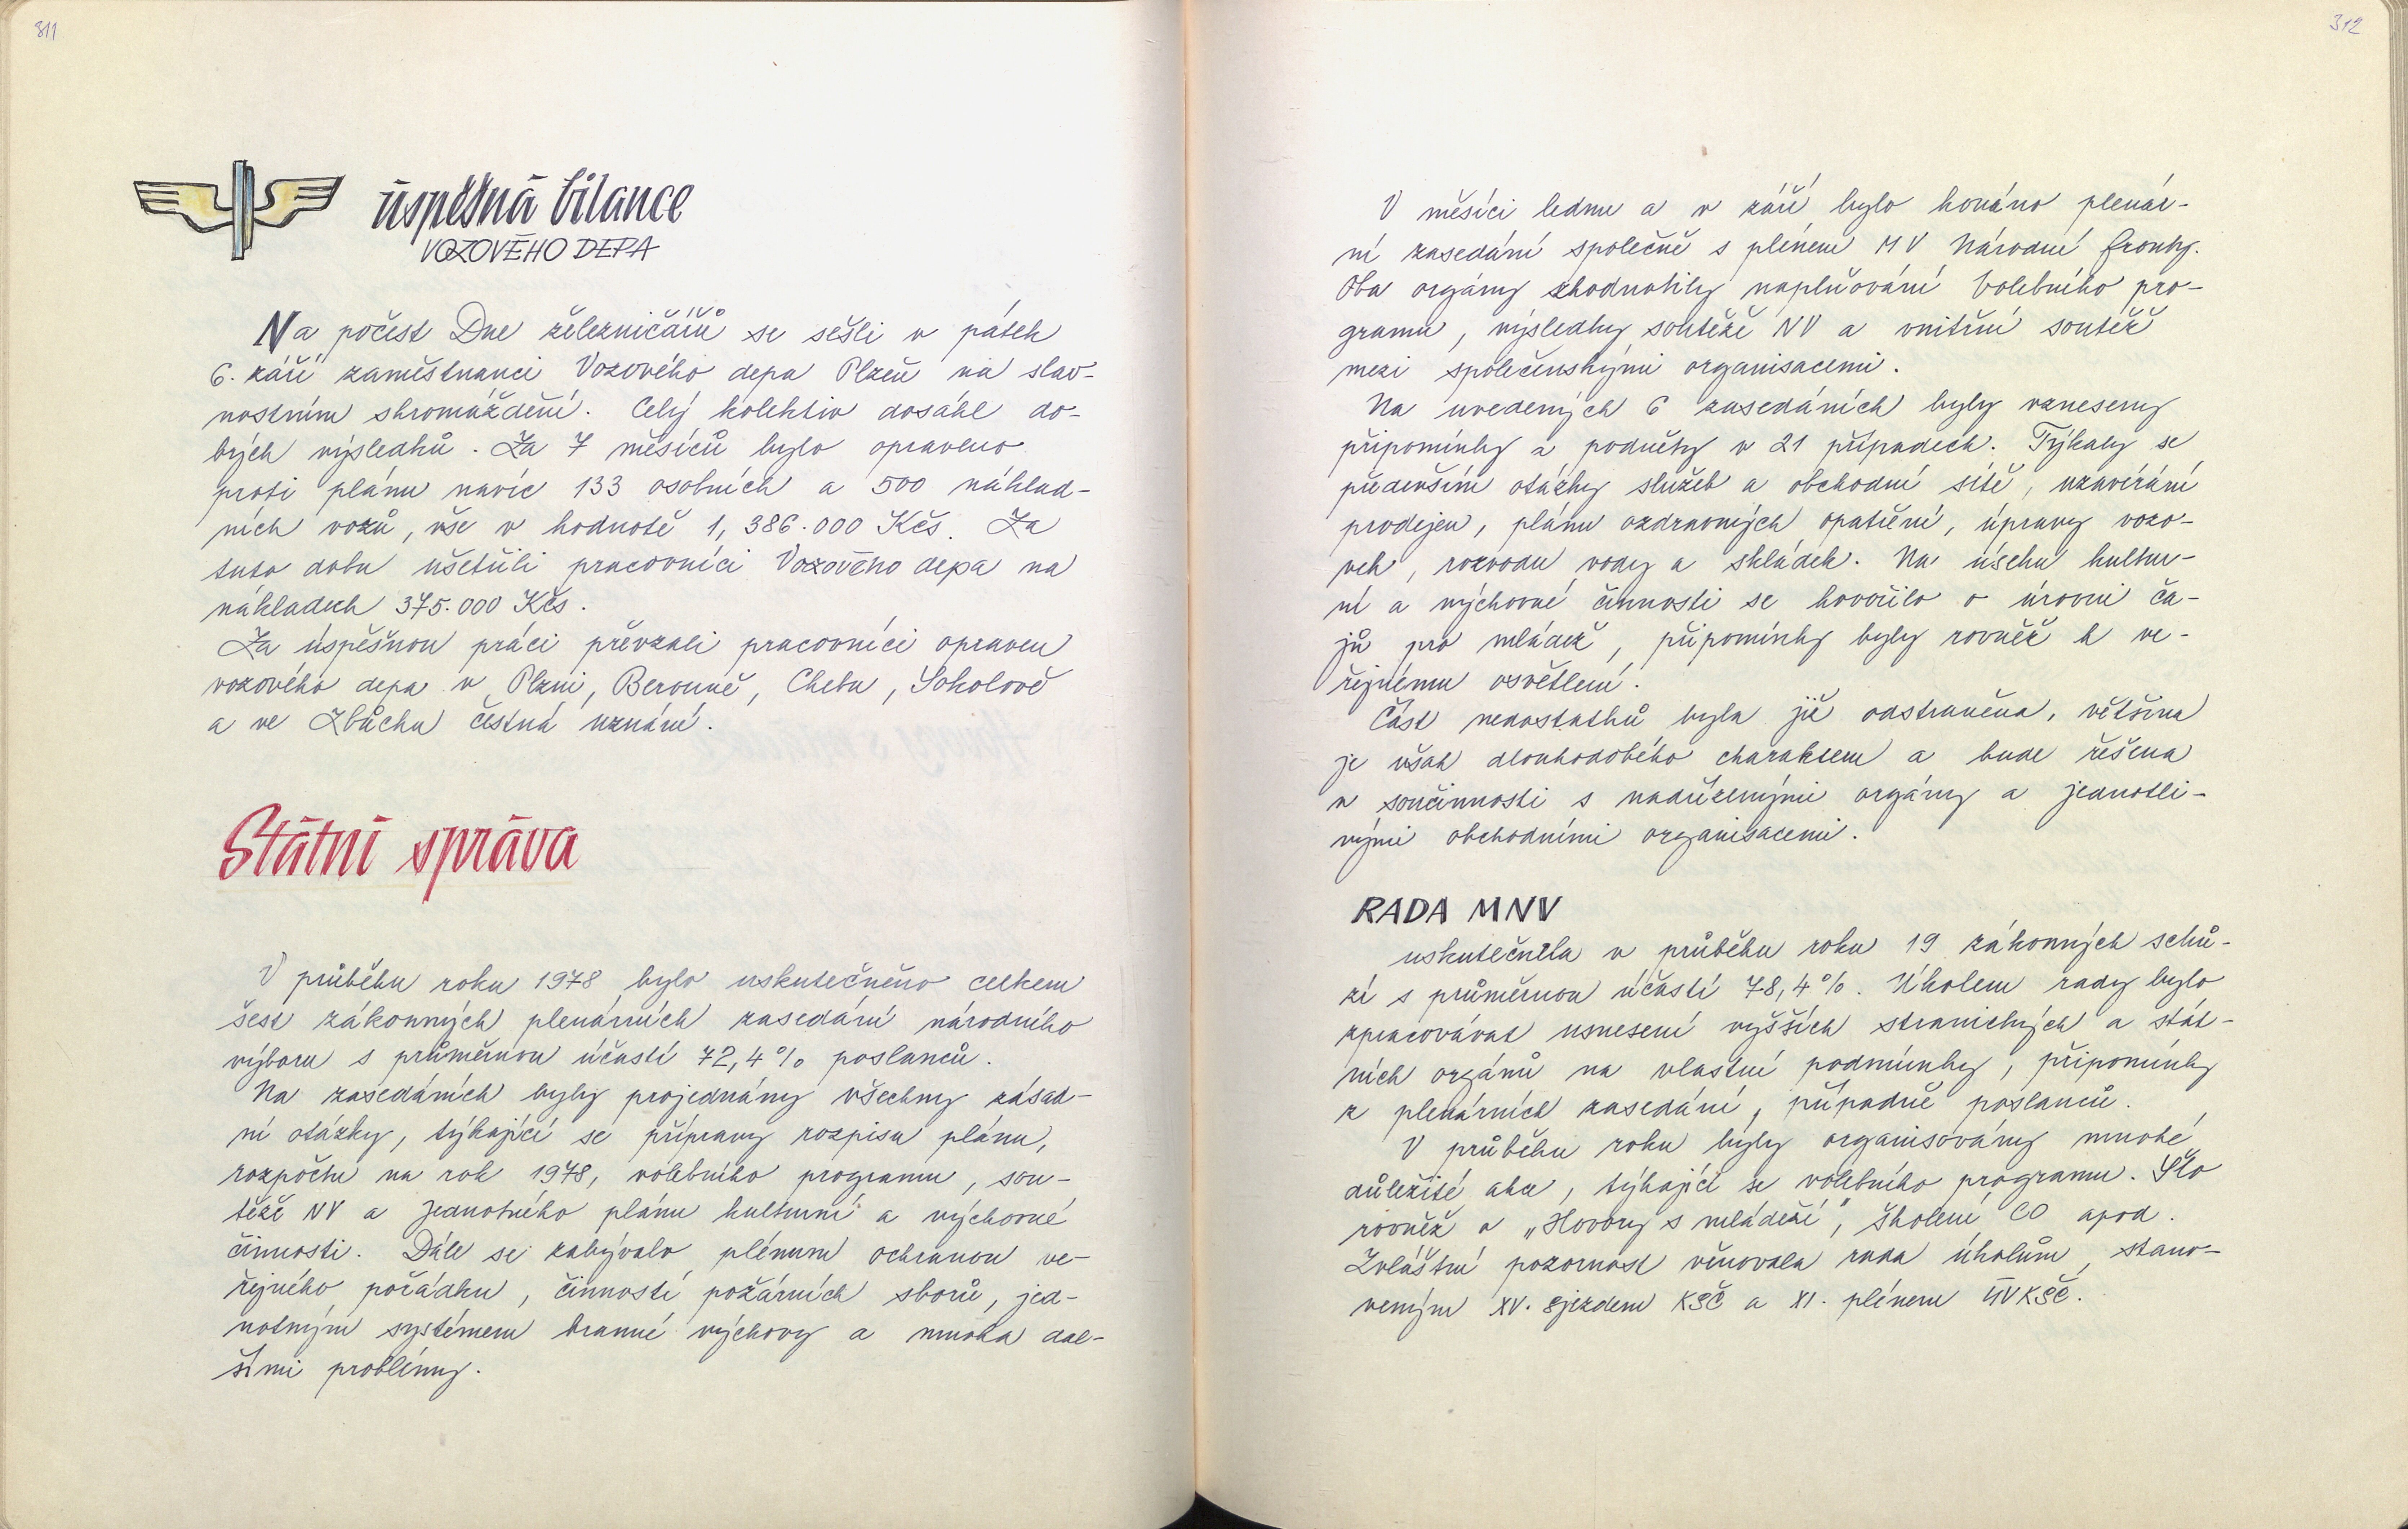 311
úspěšná bilance
VOZOVÉHO DEPA
Na počest Dne železničářů se sešli v pátek
6. září zaměstnanci Vozového depa Plzeň na slav-
nostním shromáždění. Celý kolektiv dosáhl do-
brých výsledků. Za 7 měsíců bylo opraveno
proti plánu navíc 133 osobních a 500 náklad-
ních vozů, vše v hodnotě 1,386.000 Kčs. Za
tuto dobu ušetřili pracovníci Vozového depa na
nákladech 375.000 Kčs.
Za úspěšnou práci převzali pracovníci opraven
vozového depa v Plzni, Berouně, Chebu, Sokolově
a ve Zbůchu čestná uznání.
Státní správa
V průběhu roku 1978 bylo uskutečněno celkem
šest zákonných plenárních zasedání národního
výboru s průměrnou účastí 72,4% poslanců.
Na zasedáních byly projednány všechny zásad-
ní otázky, týkající se přípravy rozpisu plánu,
rozpočtu na rok 1978, volebního programu, sou-
těže NV a Jednotného plánu kulturní a výchovné
činnosti. Dále se zabývalo plénum ochranou ve-
řejného pořádku, činností požárních sborů, jed-
notným systémem branné výchovy a mnoha dal-
šími problémy.
312
V měsíci lednu a v září bylo konáno plenár-
ní zasedání společně s plénem MV Národní fronty.
Oba orgány zhodnotily naplňování Volebního pro-
gramu, výsledky soutěže NV a vnitřní soutěž
mezi společenskými organisacemi.
Na uvedených 6 zasedáních byly vzneseny
připomínky a podněty v 21 případech. Týkaly se
především otázky služeb a obchodní sítě, uzavírání
prodejen, plánu ozdravných opatření, úpravy vozo-
vek, rozvodu vody a skládek. Na úseku kultur-
ní a výchovné činnosti se hovořilo o úrovni ča-
jů pro mládež, připomínky byly rovněž k ve-
řejnému osvětlení.
Část nedostatků byla již odstraněna, většina
je však dlouhodobého charakteru a bude řešena
v součinnosti s nadřízenými orgány a jednotli-
vými obchodními organisacemi.
RADA MNV
uskutečnila v průběhu roku 19 zákonných schů-
zí s průměrnou účastí 78,4%. Úkolem rady bylo
zpracovávat usnesení vyšších stranických a stát-
ních orgánů na vlastní podmínky, připomínky
z plenárních zasedání, případně poslanců.
V průběhu roku byly organisovány mnohé
důležité akce, týkající se volebního programu. Šlo
rovněž o „Hovory s mládeží", školení CO apod.
Zvláštní pozornost věnovala rada úkolům, stano-
veným XV. sjezdem KSČ a XI. plénem ÚV KSČ.